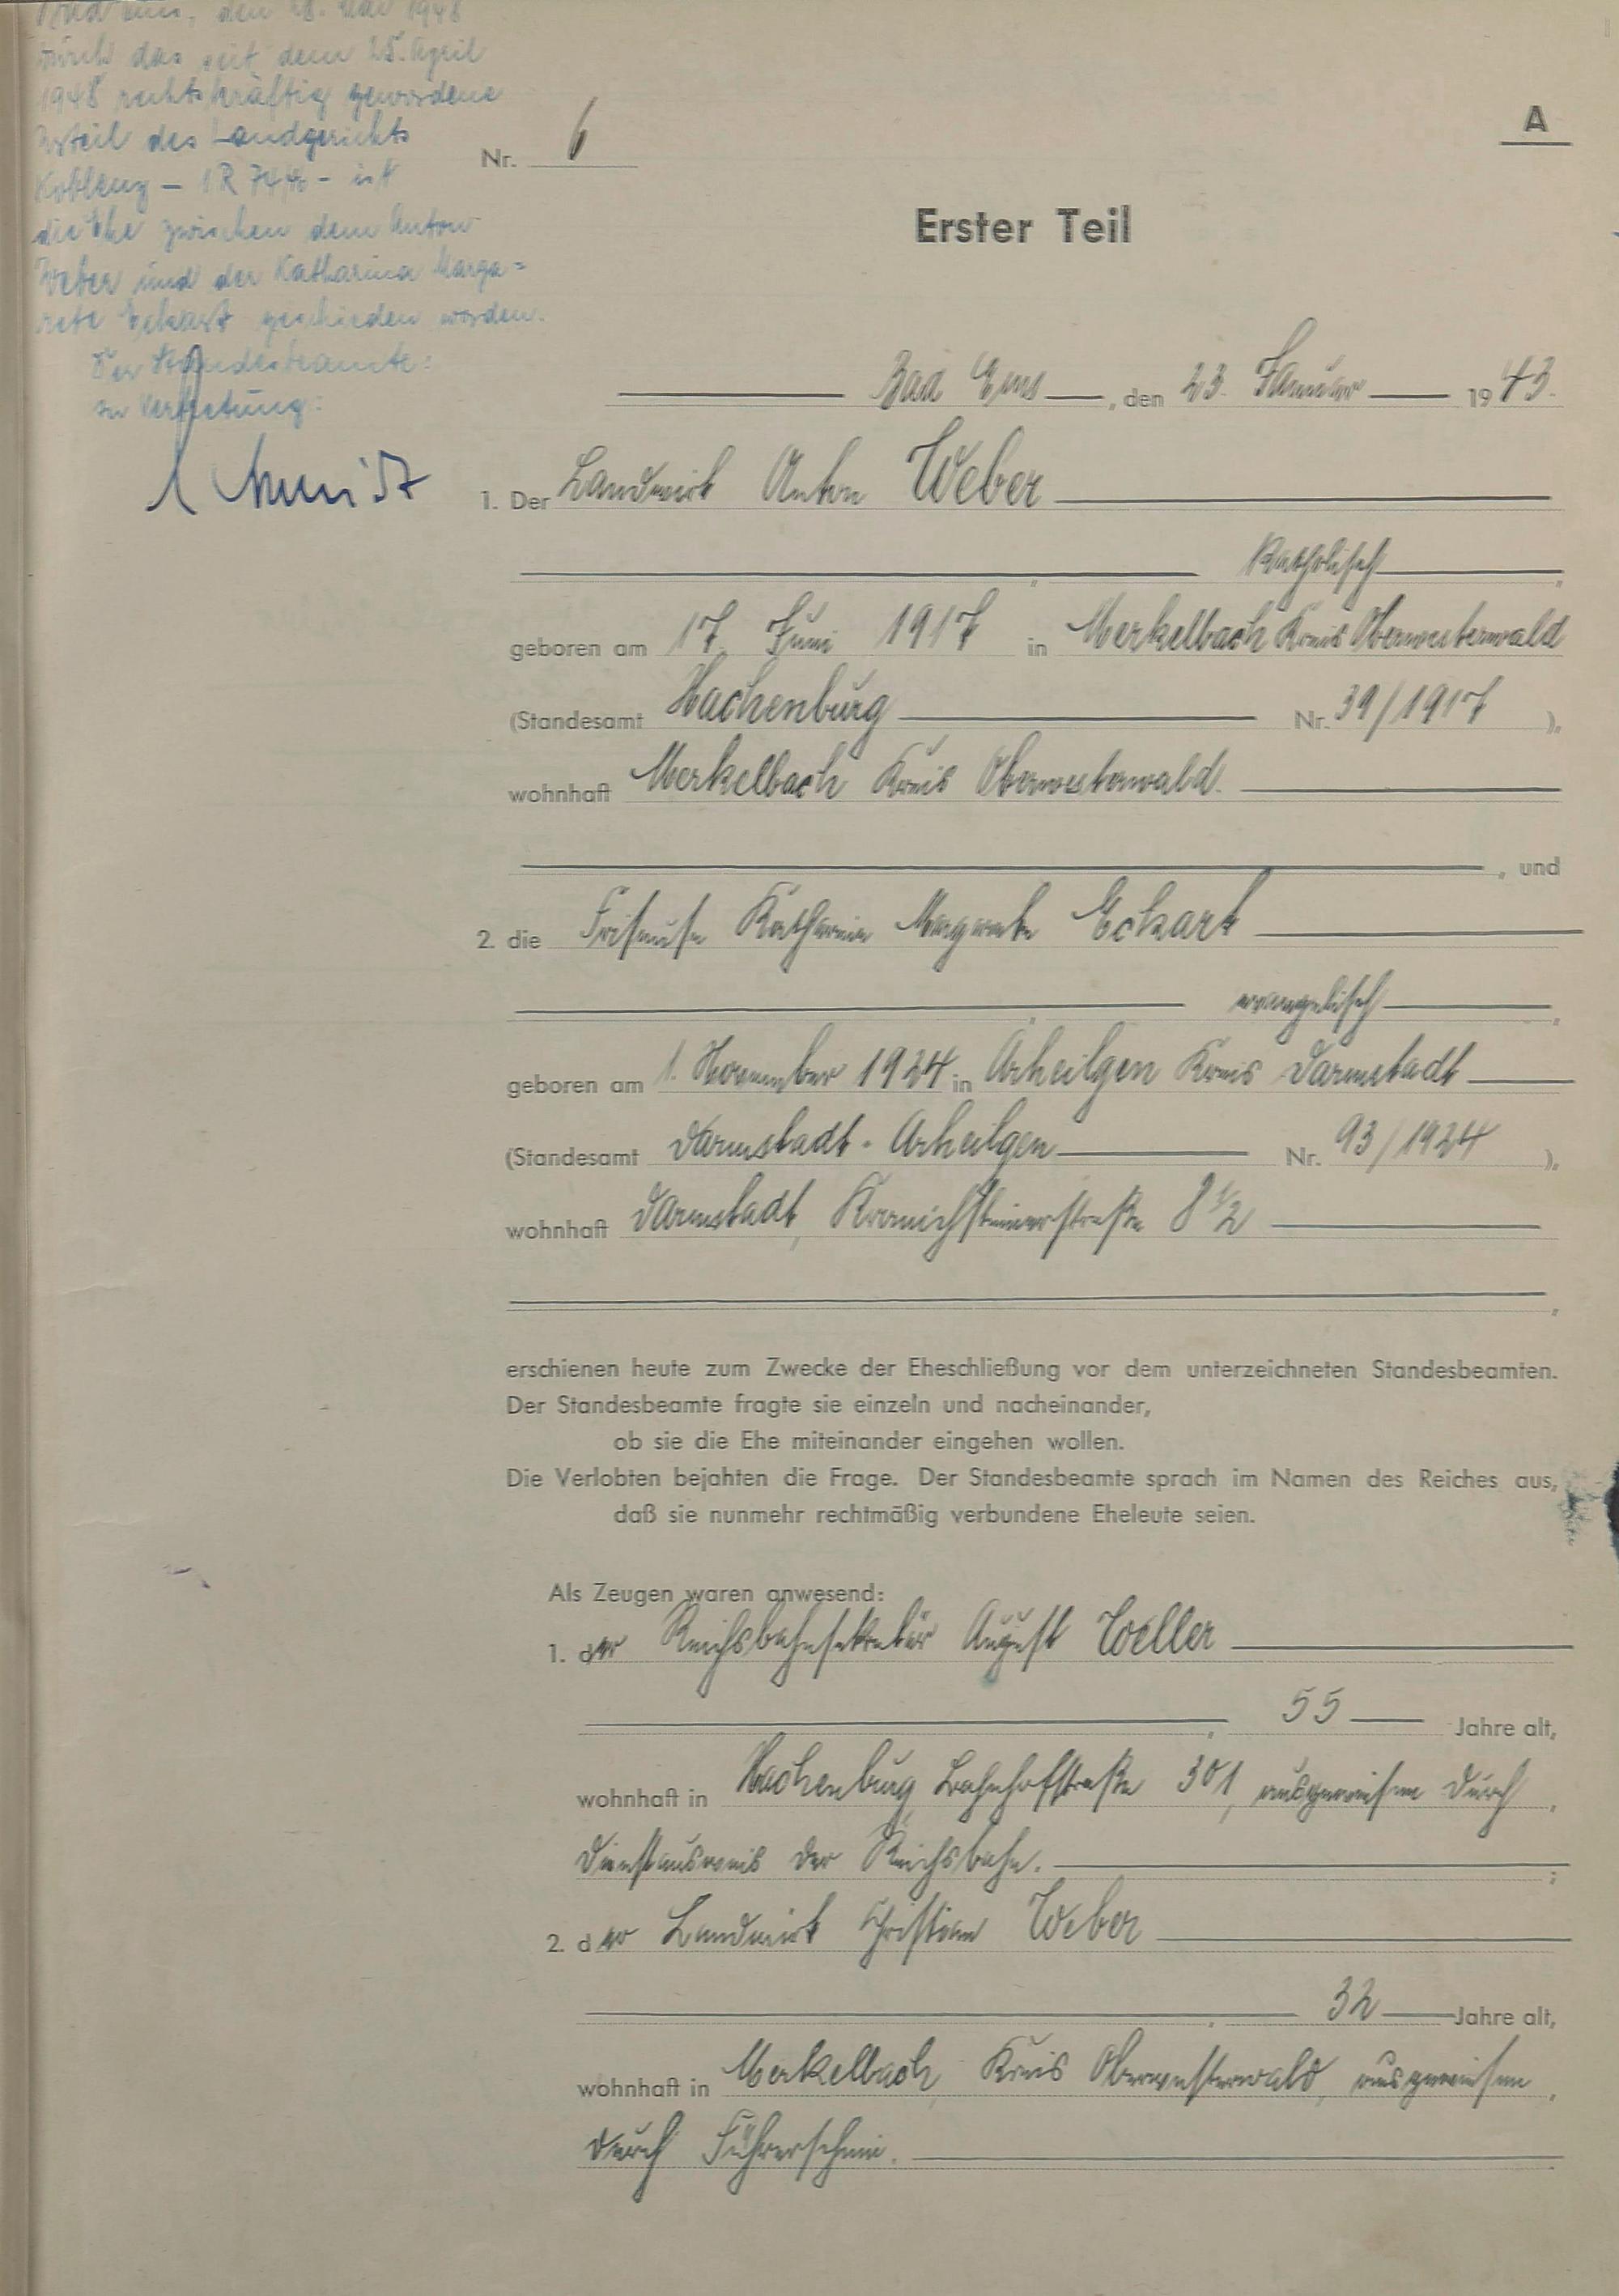 Bad Ems, den 28. Mai 1948
Durch das seit dem 25. April
1948 rechtskräftig gewordene
Urteil des Landgerichts
Koblenz – 1 R – ist
die Ehe zwischen dem Anton
Weber und der Katharina Marga=
rete Eckart geschieden worden.
Der Standesbeamte:
in Vertretung:
Schmidt
A
Nr. 6
Erster Teil
Bad Ems, den 23. Januar 1943.
1. Der Landwirt Anton Weber
, katholisch,
geboren am 17. Juni 1917 in Merkelbach Kreis Oberwesterwald
(Standesamt Hachenburg Nr. 39/1917 ),
wohnhaft Merkelbach Kreis Oberwesterwald.
, und
2. die Friseuse Katharina Margarete Eckart
, evangelisch,
geboren am 1. November 1924 in Arheilgen Kreis Darmstadt
(Standesamt Darmstadt-Arheilgen Nr. 93/1924 ),
wohnhaft Darmstadt, Kranichsteinerstraße 8 1/2
,
erschienen heute zum Zwecke der Eheschließung vor dem unterzeichneten Standesbeamten.
Der Standesbeamte fragte sie einzeln und nacheinander,
ob sie die Ehe miteinander eingehen wollen.
Die Verlobten bejahten die Frage. Der Standesbeamte sprach im Namen des Reiches aus,
daß sie nunmehr rechtmäßig verbundene Eheleute seien.
Als Zeugen waren anwesend:
1. der Reichsbahnsekretär August Zoeller
, 55 Jahre alt,
wohnhaft in Hachenburg, Bahnhofstraße 301, ausgewiesen durch,
Dienstausweis der Reichsbahn. ;
2. der Landwirt Christian Weber
, 32 Jahre alt,
wohnhaft in Merkelbach, Kreis Oberwesterwald, ausgewiesen,
durch Führerschein.